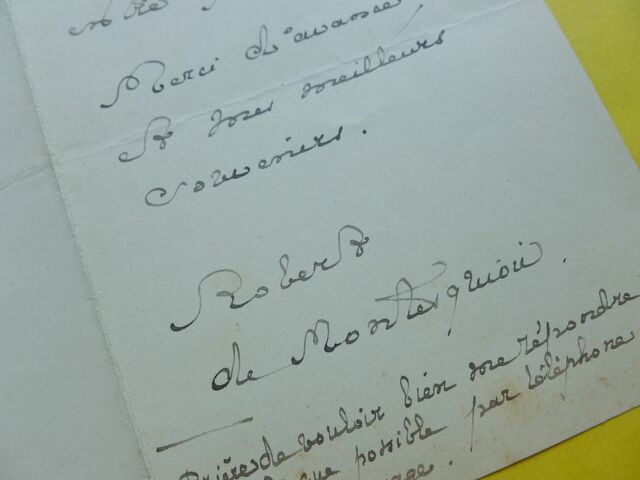 Merci d'avance,
Et mes meilleurs
Souvenirs.
Robert
de Montesquiou.
Prière de vouloir bien me répondre
que possible par téléphone